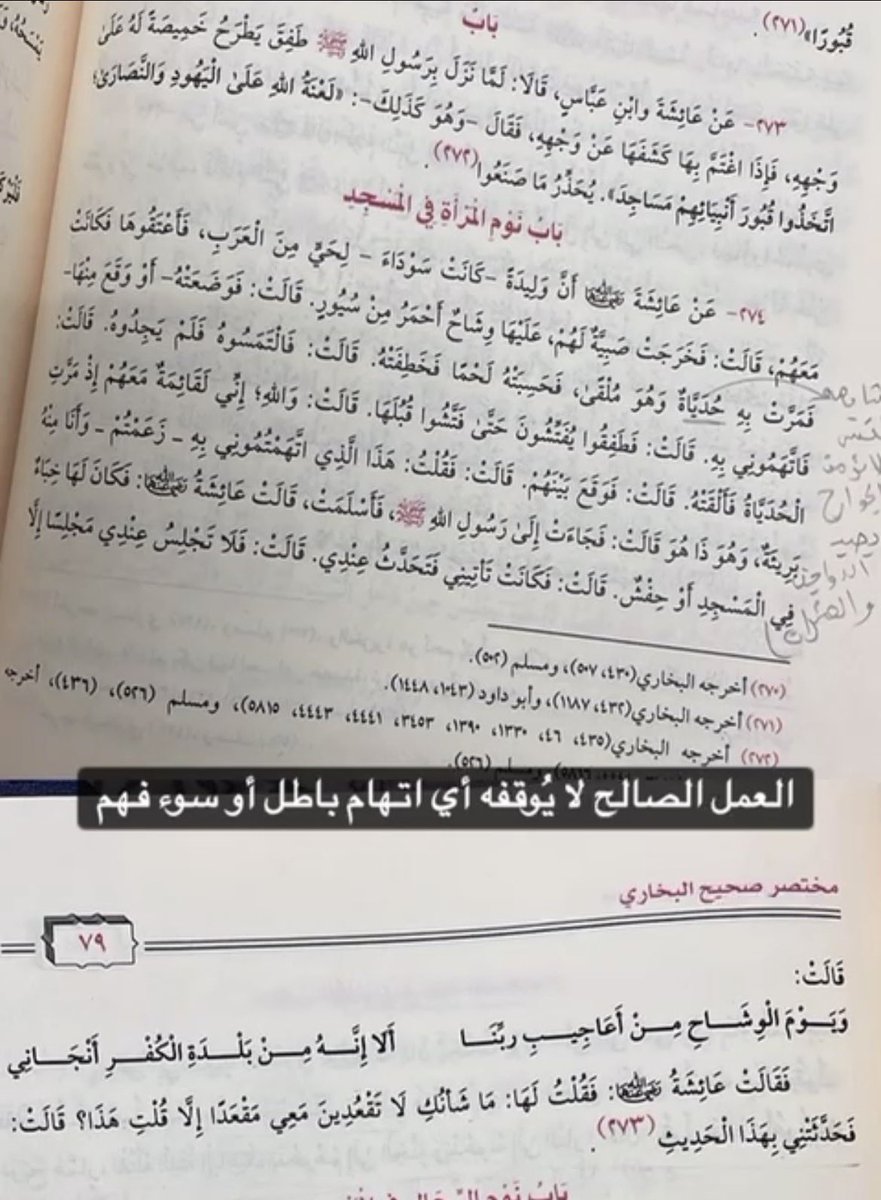 قُبُورًا»(٢٧١).
بَابٌ
٢٧٣- عَنْ عَائِشَةَ وابْنِ عَبَّاسٍ، قَالَا: لَمَّا نَزَلَ بِرَسُولِ اللهِ ﷺ طَفِقَ يَطْرَحُ خَمِيصَةً لَهُ عَلَىٰ
وَجْهِهِ، فَإِذَا اغْتَمَّ بِهَا كَشَفَهَا عَنْ وَجْهِهِ، فَقَالَ -وَهُوَ كَذَلِكَ-: «لَعْنَةُ اللهِ عَلَىٰ الْيَهُودِ وَالنَّصَارَىٰ؛
اتَّخَذُوا قُبُورَ أَنْبِيَائِهِمْ مَسَاجِدَ». يُحَذِّرُ مَا صَنَعُوا(٢٧٢).
بَابُ نَوْمِ المَرْأَةِ فِي المَسْجِدِ
٢٧٤- عَنْ عَائِشَةَ رضي الله عنها أَنَّ وَلِيدَةً -كَانَتْ سَوْدَاءَ - لِحَيٍّ مِنَ الْعَرَبِ، فَأَعْتَقُوهَا فَكَانَتْ
مَعَهُمْ، قَالَتْ: فَخَرَجَتْ صَبِيَّةٌ لَهُمْ، عَلَيْهَا وِشَاحٌ أَحْمَرُ مِنْ سُيُورٍ. قَالَتْ: فَوَضَعَتْهُ- أَوْ وَقَعَ مِنْهَا-
فَمَرَّتْ بِهِ حُدَيَّاةٌ وَهُوَ مُلْقَىٰ، فَحَسِبَتْهُ لَحْمًا فَخَطِفَتْهُ. قَالَتْ: فَالْتَمَسُوهُ فَلَمْ يَجِدُوهُ. قَالَتْ:
فَاتَّهَمُونِي بِهِ. قَالَتْ: فَطَفِقُوا يُفَتِّشُونَ حَتَّىٰ فَتَّشُوا قُبُلَهَا. قَالَتْ: وَاللهِ؛ إِنِّي لَقَائِمَةٌ مَعَهُمْ إِذْ مَرَّتِ
الْحُدَيَّاةُ فَأَلْقَتْهُ. قَالَتْ: فَوَقَعَ بَيْنَهُمْ. قَالَتْ: فَقُلْتُ: هَذَا الَّذِي اتَّهَمْتُمُونِي بِهِ - زَعَمْتُمْ - وَأَنَا مِنْهُ
بَرِيئَةٌ، وَهُوَ ذَا هُوَ قَالَتْ: فَجَاءَتْ إِلَىٰ رَسُولِ اللهِ ﷺ، فَأَسْلَمَتْ، قَالَتْ عَائِشَةُ رضي الله عنها: فَكَانَ لَهَا خِبَاءٌ
فِي الْمَسْجِدِ أَوْ حِفْشٌ. قَالَتْ: فَكَانَتْ تَأْتِينِي فَتَحَدَّثُ عِنْدِي. قَالَتْ: فَلَا تَجْلِسُ عِنْدِي مَجْلِسًا إِلَّا
(٢٧٠) أخرجه البخاري(٤٣٠، ٥٠٧)، ومسلم (٥٠٢).
(٢٧١) أخرجه البخاري(٤٣٢، ١١٨٧)، وأبو داود (١٠٤٣، ١٤٤٨).
(٢٧٢) أخرجه البخاري(٤٣٥، ٤٦، ١٣٣٠، ١٣٩٠، ٣٤٥٣، ٤٤٤١، ٤٤٤٣، ٥٨١٥)، ومسلم (٥٢٦)، (٤٣٦)، أخرجه
ومسلم (٥٢٦).
العمل الصالح لا يُوقفه أي اتهام باطل أو سوء فهم
مختصر صحيح البخاري
٧٩
قَالَتْ:
وَيَـوْمَ الْوِشَـاحِ مِـنْ أَعَاجِيـبِ ربِّنَـا أَلَا إِنَّـهُ مِـنْ بَلْـدَةِ الْكُفْـرِ أَنْجَـانِي
فَقَالَتْ عَائِشَةُ رضي الله عنها: فَقُلْتُ لَهَا: مَا شَأْنُكِ لَا تَقْعُدِينَ مَعِي مَقْعَدًا إِلَّا قُلْتِ هَذَا؟ قَالَتْ:
فَحَدَّثَتْنِي بِهَذَا الْحَدِيثِ (٢٧٣).